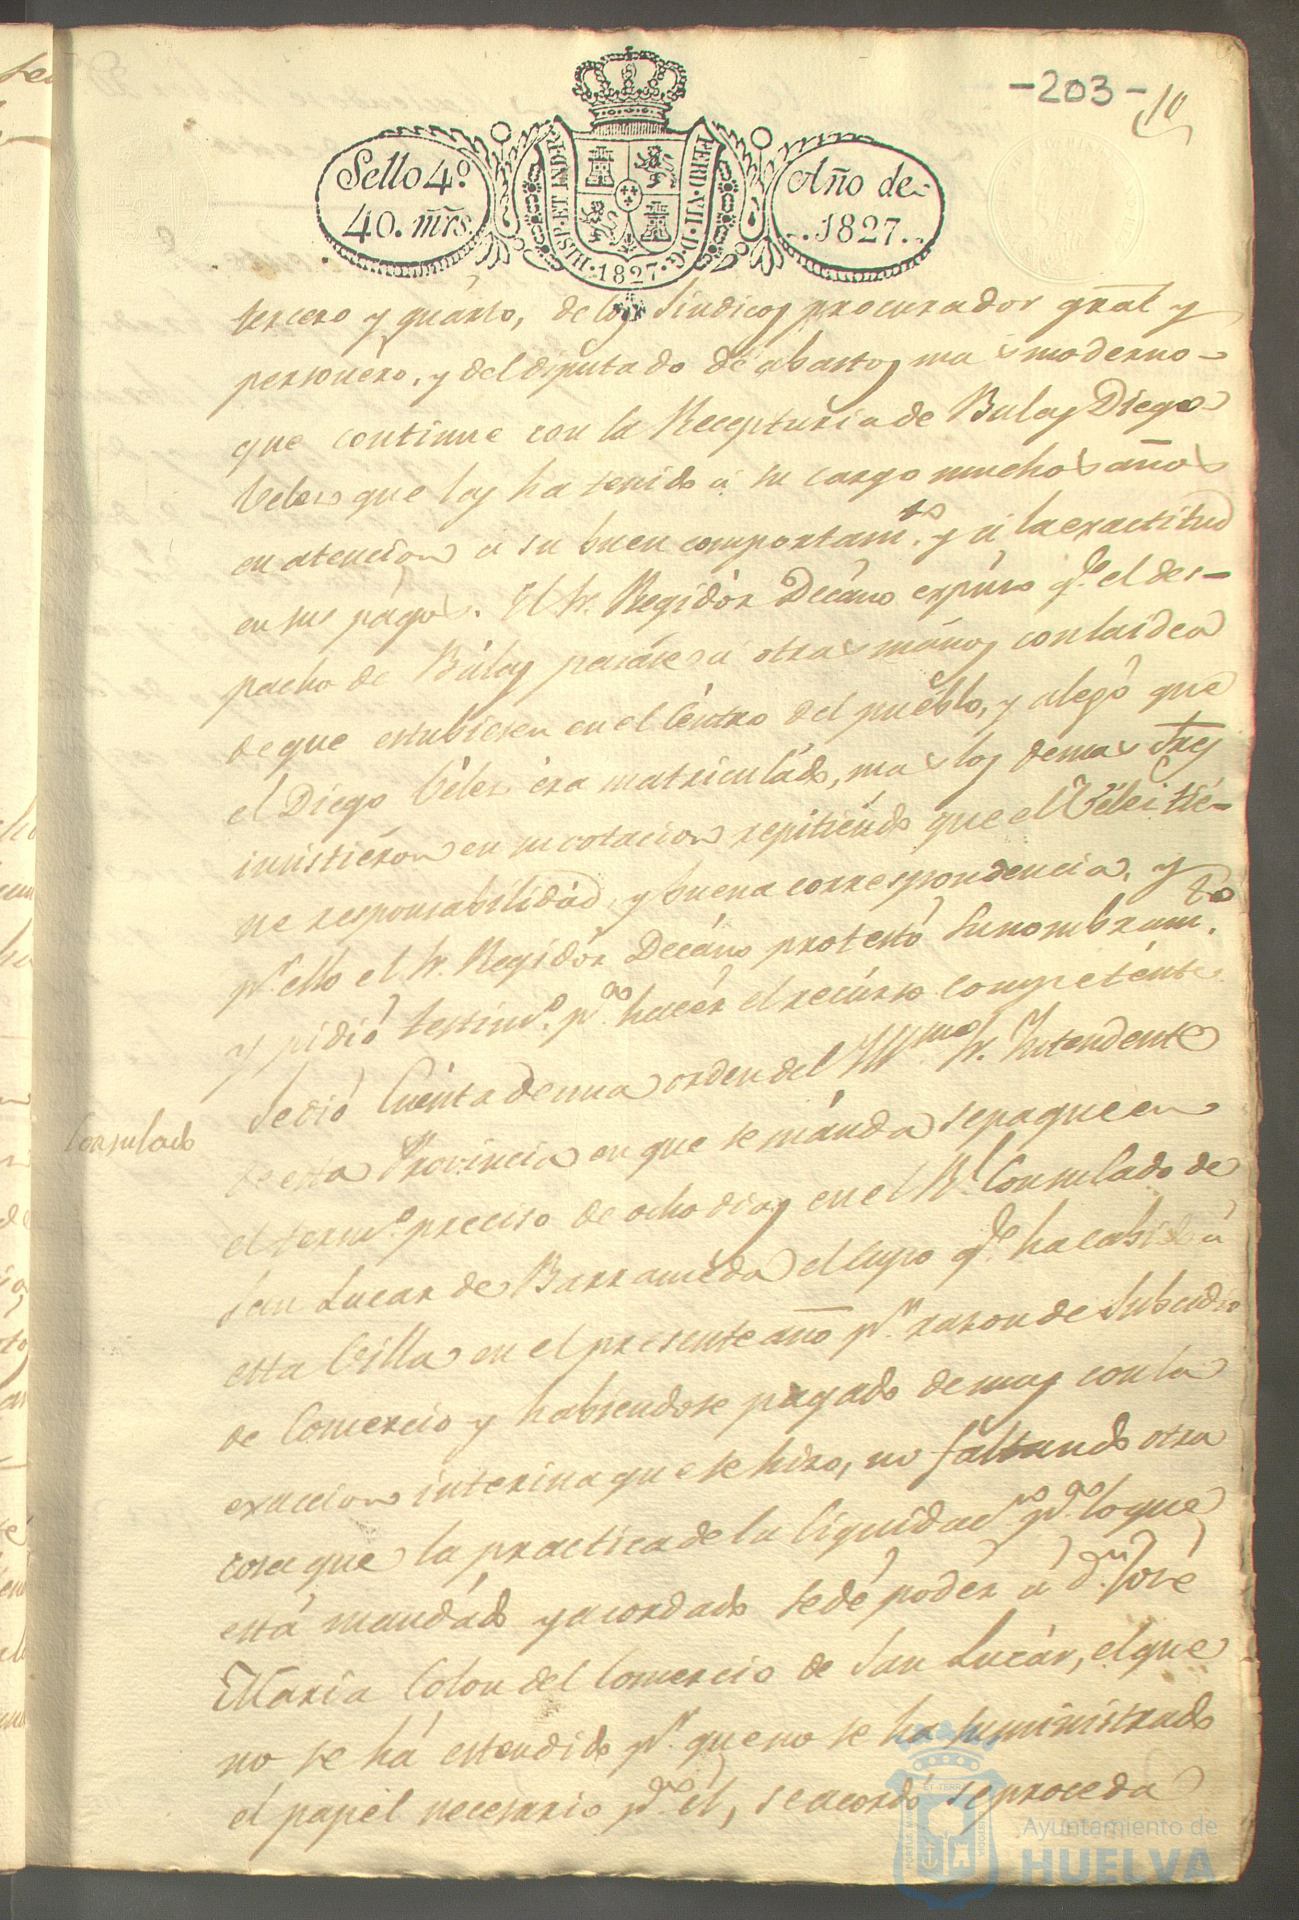 -203-
10
Sello 4º
40. mrs.
HISP. ET IND. R.
FERD. VII. D. G.
1827
Año de
1827.
tercero y quárto, de los Síndicos procurador gral y
personero, y del diputado de abastos mas moderno
que continue con la Recepturia de Bulas Diego
Velez que las ha tenido á su cargo muchos años
en atencion á su buen comportamto. y á la exactitud
en sus págos. El Sr. Regidór Decáno expúso qe. el des-
pacho de Búlas pasáse á otras mános con la idea
de que estubiesen en el Céntro del pueblo, y alegó que
el Diego Vélez éra matriculádo, mas los demas Sres
insistiéron en su votacion repitiéndo que el Vélez tié-
ne responsabilidád, y buena correspondencia, y
pr. ello el Sr. Regidór Decáno protestó su nombramto.
y pidió testimo. pa. hacér el recúrso competénte
Consulado
Se dió Cuénta de una orden del Yllmo Sr. Intendente
de esta Provincia en que se mánda se pague en
el termo. preciso de ocho dias en el Rl. Consulado de
San Lucar de Barraméda el cupo qe. ha cabido á
esta Villa en el presente año pr. razon de Subcidio
de Comercio y habiendose pagado de mas con la
exaccion interina que se hizo, no faltando otra
cosa que la practica de la liquidacn. pa. lo que
está mandádo y acordado se dé podér á Dn. José
María Colon del Comercio de San Lucár, el que
no se há estendido pr. que no se ha suministrado
el papél necesario pa. él, se acordó se proceda
Ayuntamiento de
HUELVA